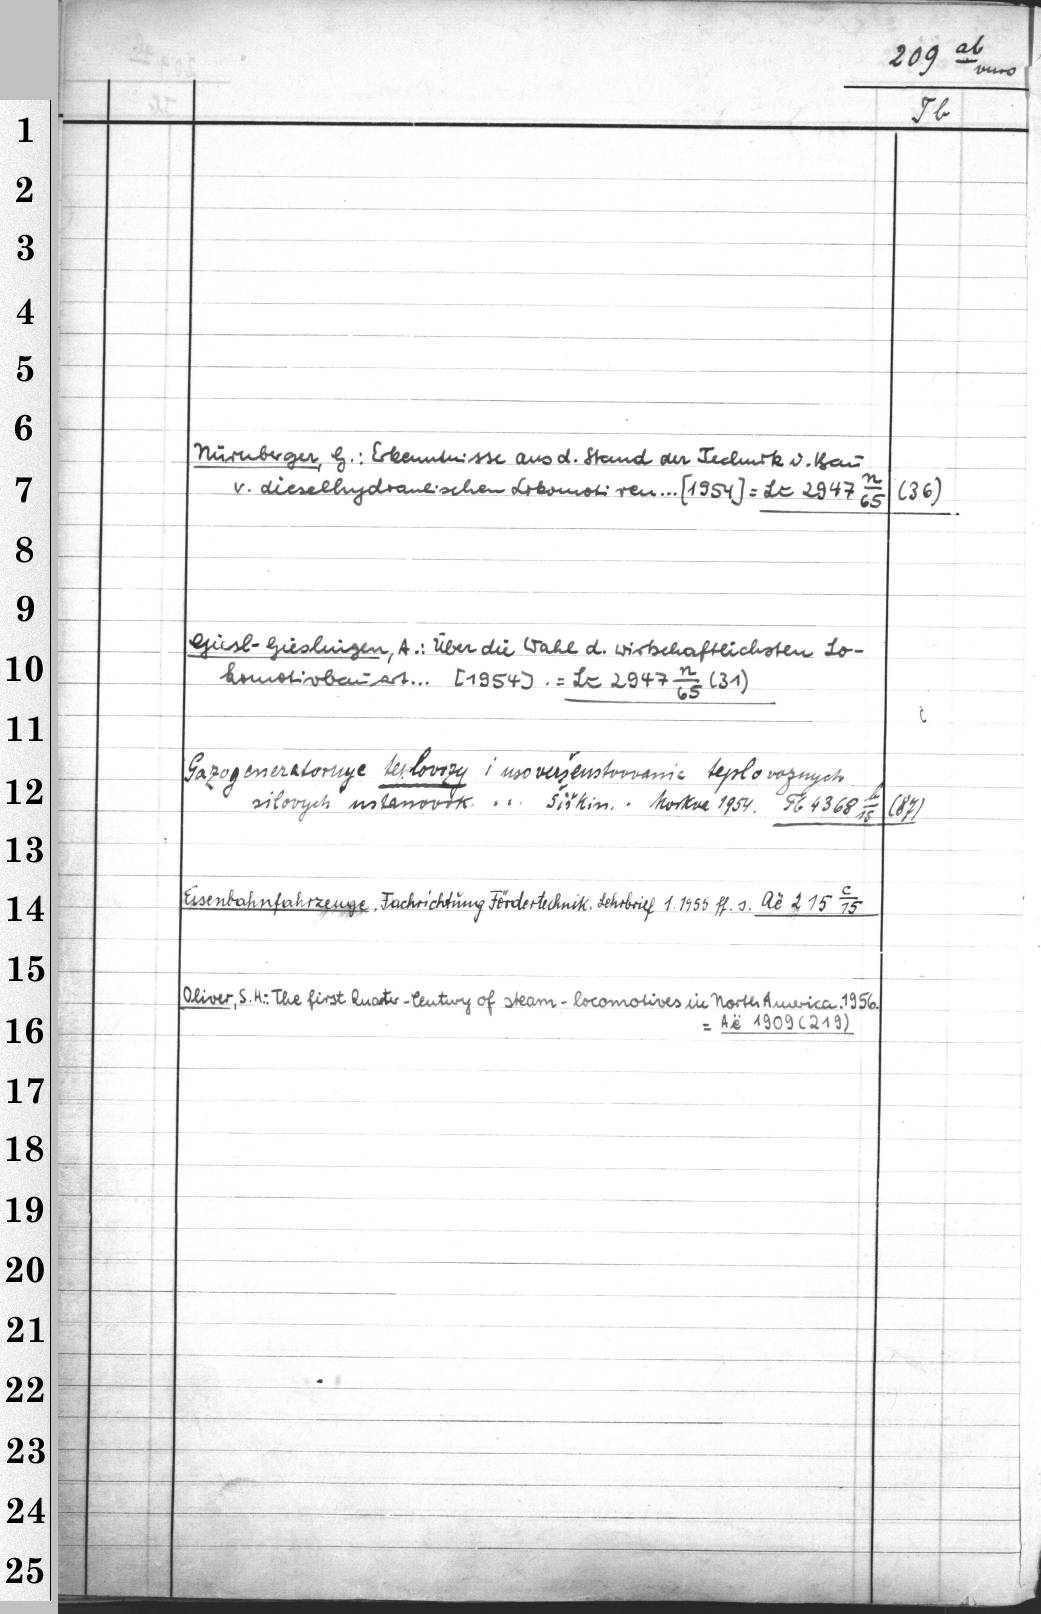 209 ab
Tb
1
2
3
4
5
6
Nürnberger, G.: Erkenntnisse aus d. Stand der Technik v. Bau
7
v. dieselhydraulischen Lokomotiven... [1954] = 2947 n/65 (36)
8
9
Giesl-Gieslingen, A.: Über die Wahl d. wirtschaftlichsten Lo-
10
komotivbauart... [1954] . = 2947 n/65 (31)
11
Gazogeneratornye teplovozy i usoveršenstvovanie teplovoznych
12
silovych ustanovok. ... Šiškin. . Moskva 1954. 4368 /15 (87)
13
14
Eisenbahnfahrzeuge. Fachrichtung Fördertechnik. Lehrbrief 1. 1955 ff. s. Aë 215 c/15
15
Oliver, S. H.: The first Quarter-Century of steam-locomotives in North America. 1956.
16
= Aë 1909 (219)
17
18
19
20
21
22
23
24
25